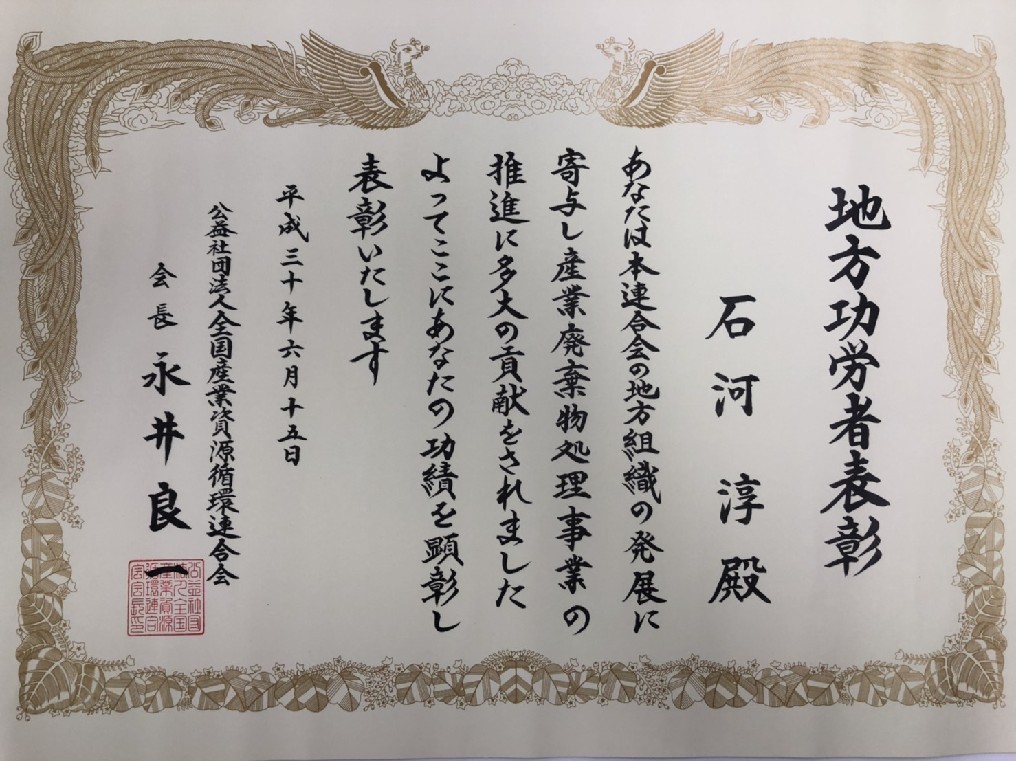 地方功労者表彰
石河 淳 殿
あなたは本連合会の地方組織の発展に
寄与し産業廃棄物処理事業の
推進に多大の貢献をされました
よってここにあなたの功績を顕彰し
表彰いたします
平成三十年六月十五日
公益社団法人全国産業資源循環連合会
会長 永井良一